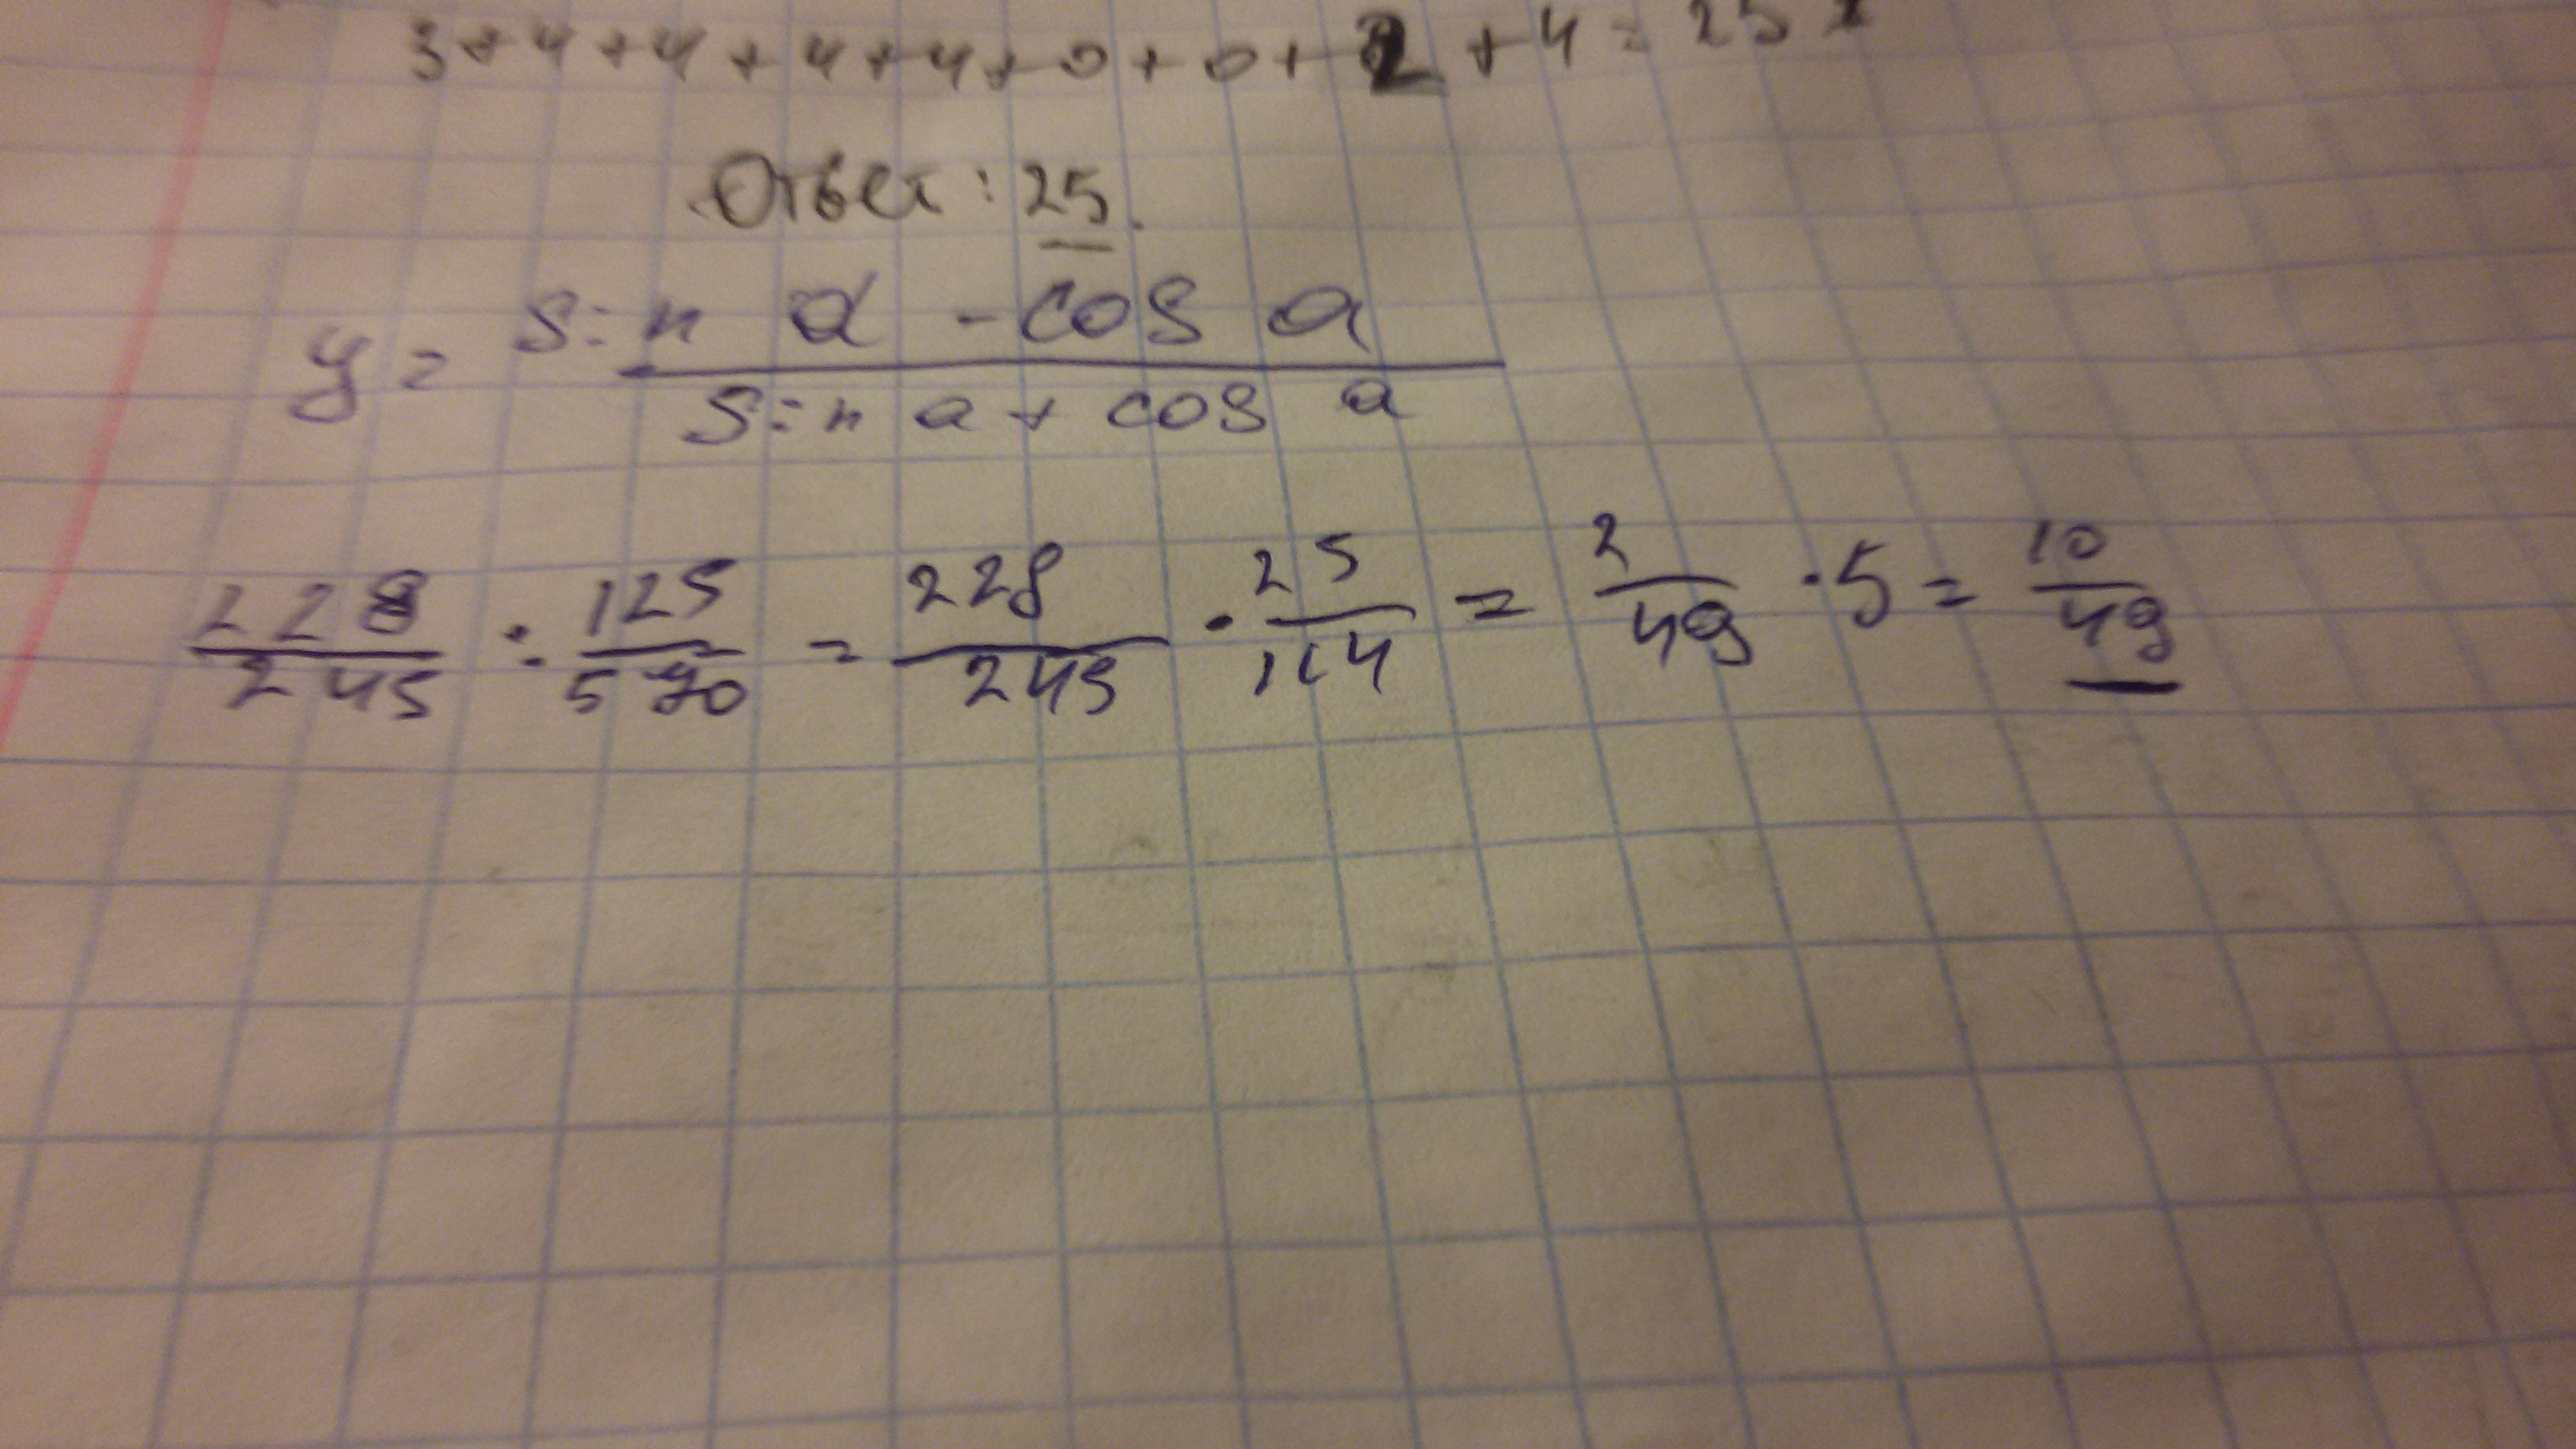 3+4+4+4+4+0+0+2+4=25
Ответ: 25.
y = (sin α - cos a) / (sin a + cos a)
228/245 : 125/570 = 228/245 · 25/114 = 2/49 · 5 = 10/49